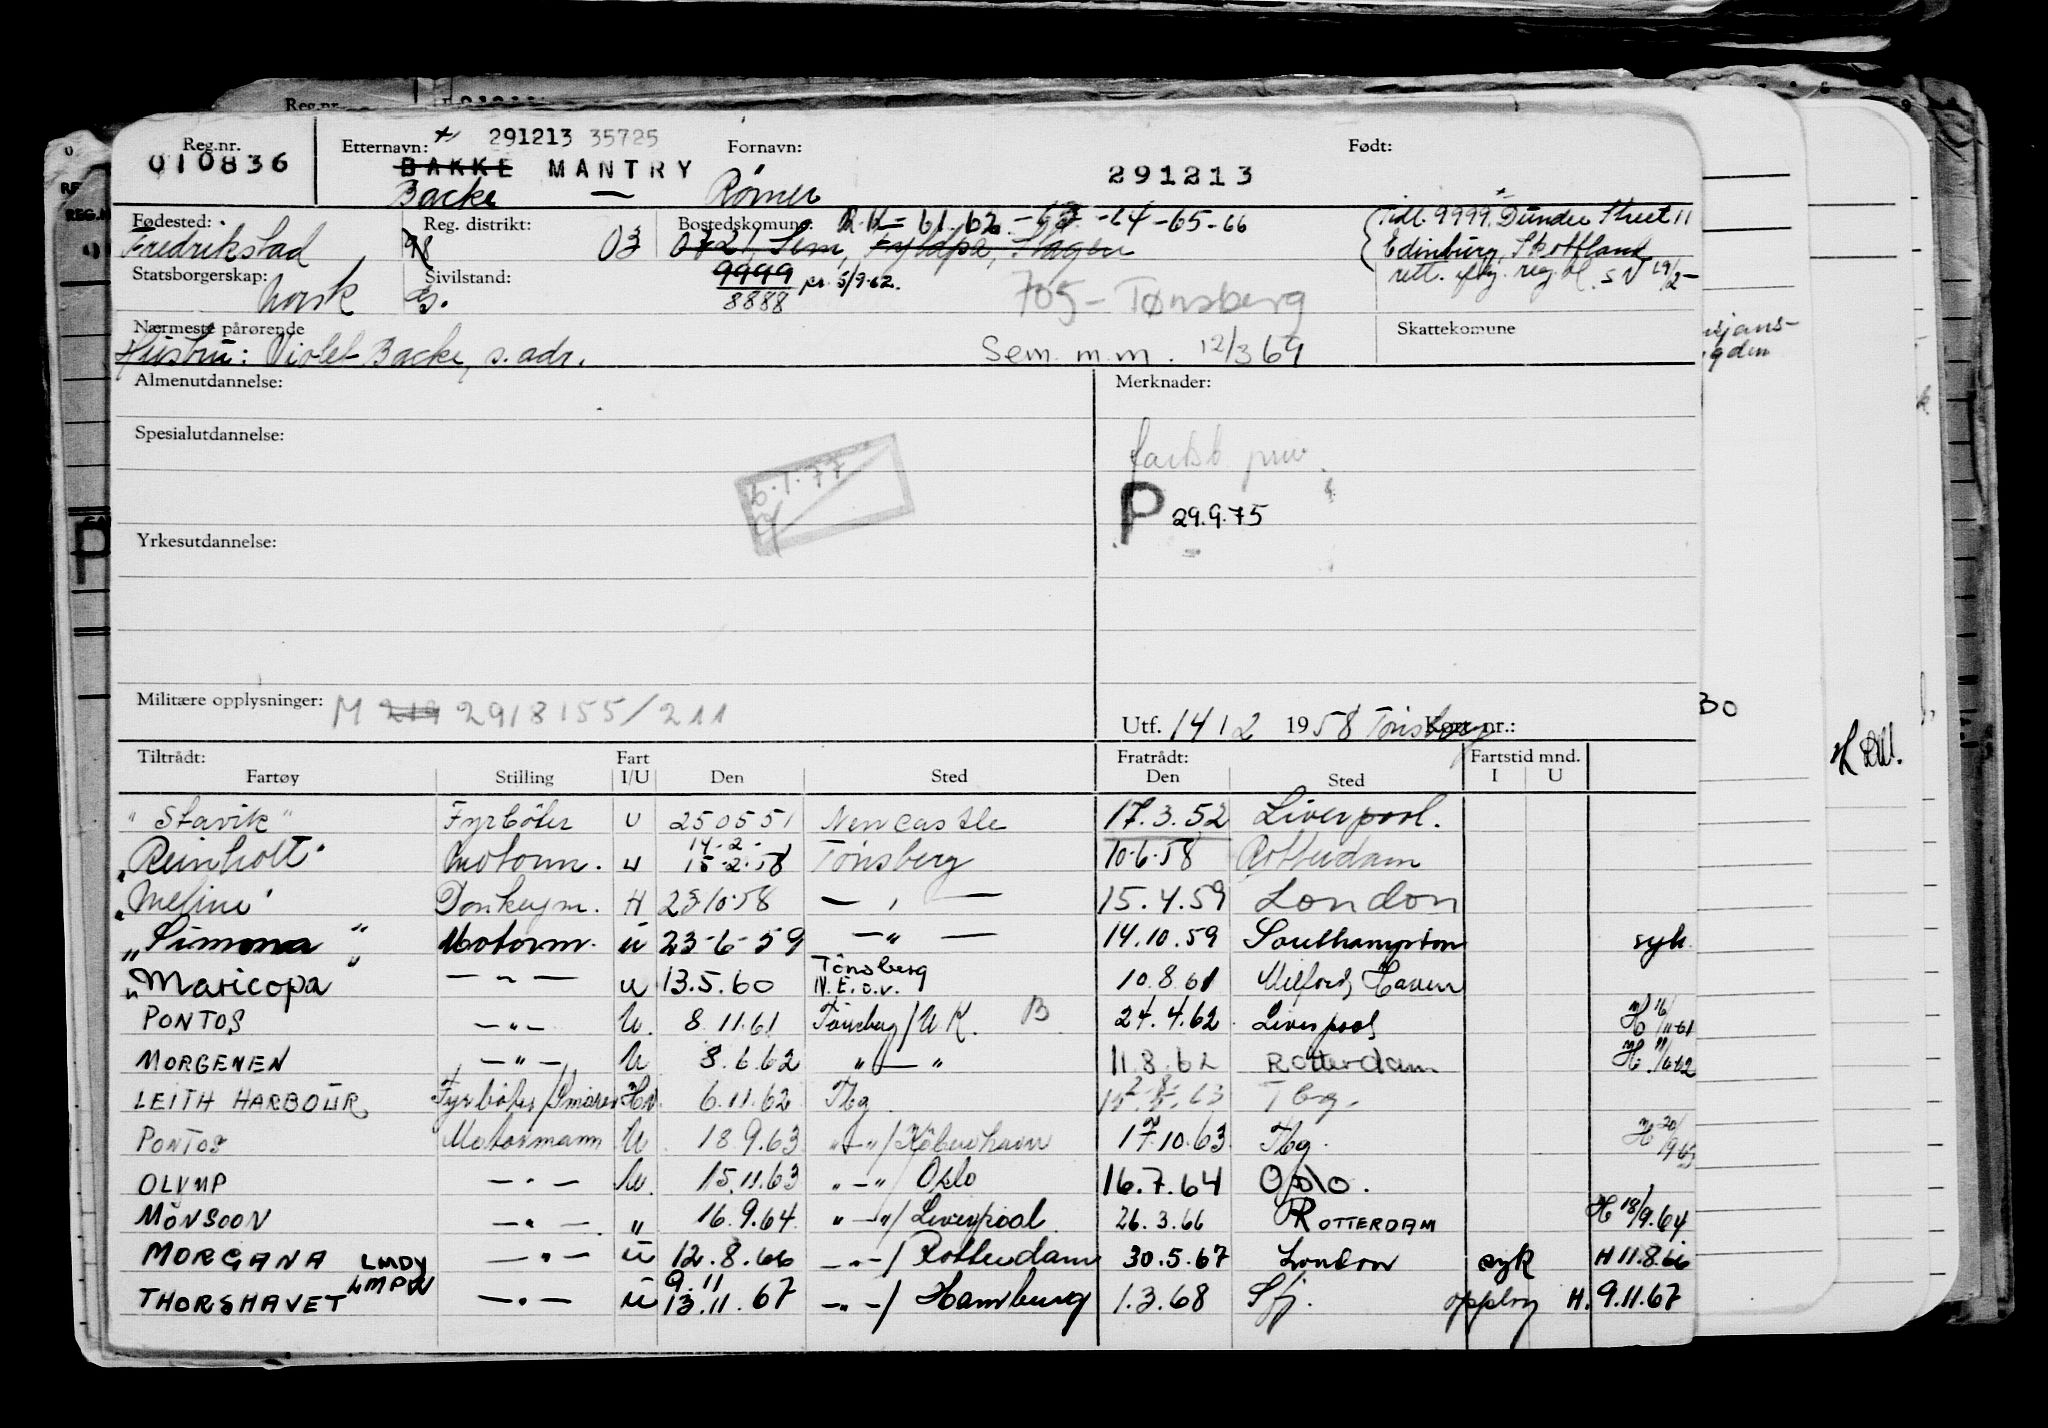 Reg.nr. Etternavn: 291213 35725 Fornavn: Født:
010836 BAKKE MANTRY 291213
Backe — Rømer
Fødested: Reg. distrikt: Bostedskomune: R.K= 61.62.-63-64-65-66 Tidl. 9999. Dundee Street 11
Fredrikstad 03 0721 Sem, Slagen Edinburg, Skottland
Statsborgerskap: Sivilstand: 9999 5/9-62. rett. reg.bl. 19/2-
norsk g. 8888 705-Tønsberg
Nærmeste pårørende Skattekomune
Hustru: Violet Backe, s. adr. Sem m.m. 12/3 69
Almenutdannelse: Merknader:
Spesialutdannelse:
6.1.77
P 29.9.75
Yrkesutdannelse:
Militære opplysninger: M 219 2918155/211
Utf. 14 12 1958 Tønsberg Kort nr.:
Tiltrådt: Fart Fratrådt: Fartstid mnd.
Fartøy Stilling I/U Den Sted Den Sted I U
"Stavik" Fyrbøter U 250551 Newcastle 17.3.52 Liverpool.
14-2-
"Reinholt" Motorm. U 15-2-58 Tønsberg 10-6-58 Rotterdam
"Meline" Donkeym. H 23-10-58 — " — 15.4.59 London
"Simona" Motorm. u 23-6-59 — " — 14.10.59 Southampton syk
"Maricopa" — " — u 13.5.60 Tönsberg N.E.o.v. 10.8.61 Milford Haven
PONTOS — " — U. 8.11.61 Tönsberg/U.K. B 24.4.62 Liverpool H 16/11-61
MORGENEN — " — U 8.6.62 " — " 11.8.62 ROtterdam H. 11/6 62
LEITH HARBOUR Fyrbøter/Smører Hv. 6.11.62 Tbg Tbg.
PONTOS Motormann U 18 9.63 " — "/København 17.10.63 Tbg. H 20/9 63
OLYMP — " — U. 15.11.63 " — "/ Oslo 16.7.64 Oslo.
MONSOON — " — " 16.9.64. " — "/ Liverpool 26.3.66 ROTTERDAM H 18/9.64
MORGANA LMDY — " — u 12.8.66 — " —/ Rotterdam 30.5.67 London syk H 11.8.66
9.11
THORSHAVET LMPW — " — u 13.11.67 — " —/ Hamburg 1.3.68 Sfj. oppbrg H. 9.11.67